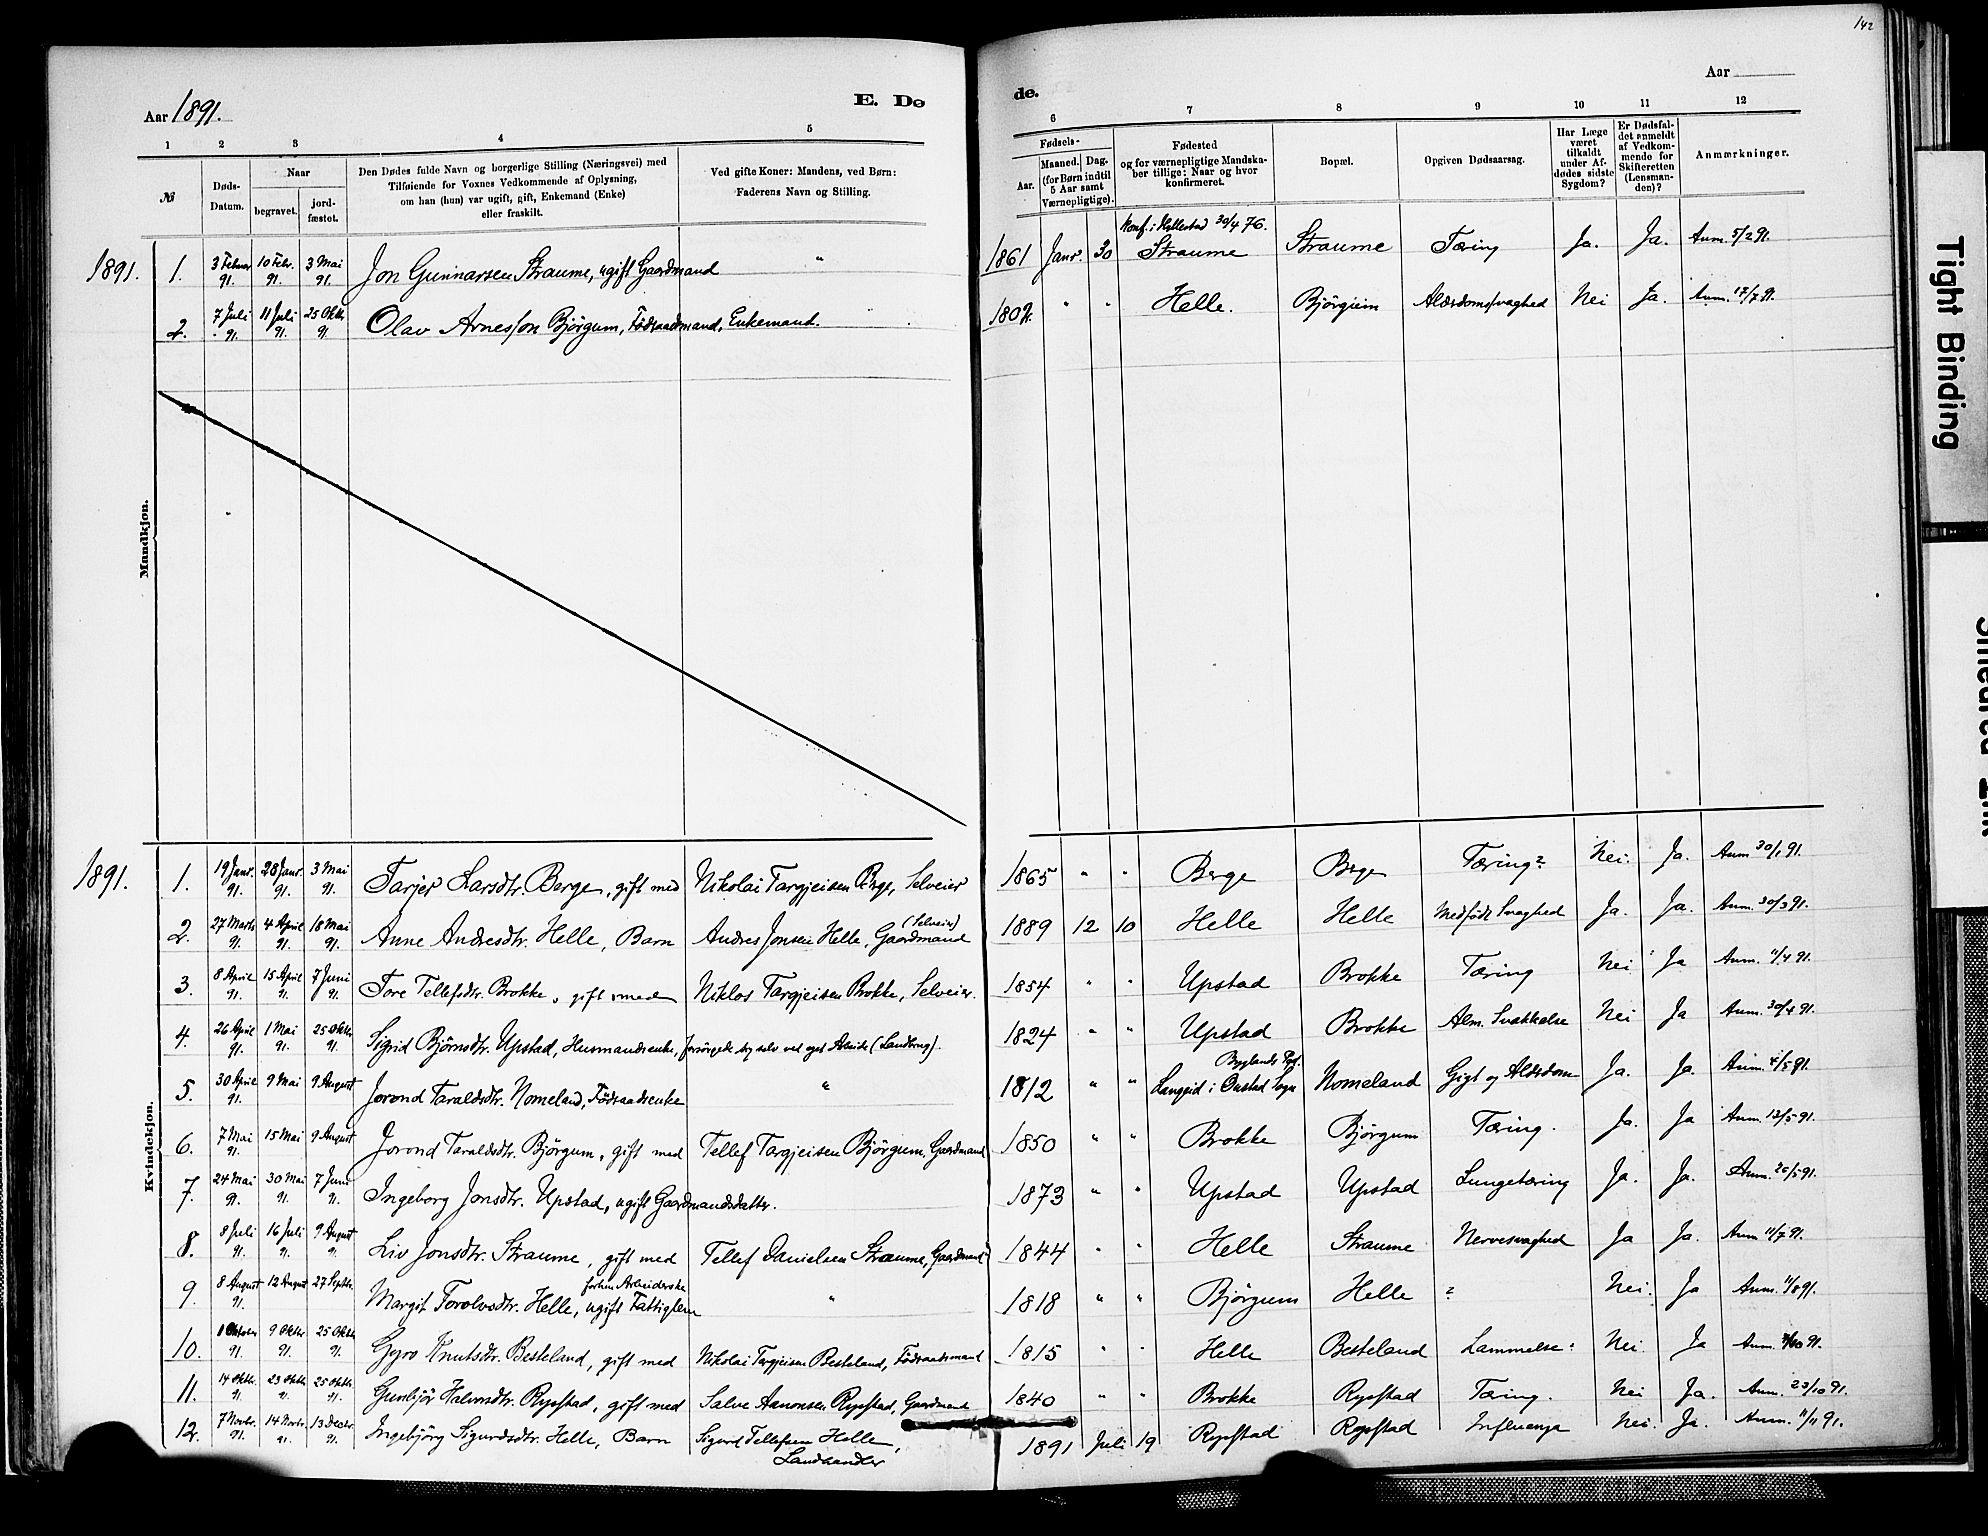 142
Aar 1891.
E. Dø
de.
Aar
1 2 3 4 5 6 7 8 9 10 11 12
№
Døds-Datum.
Naar
begravet.
jord-fæstet.
Den Dødes fulde Navn og borgerlige Stilling (Næringsvei) med
Tilføiende for Voxnes Vedkommende af Oplysning,
om han (hun) var ugift, gift, Enkemand (Enke)
eller fraskilt.
Ved gifte Koner: Mandens, ved Børn:
Faderens Navn og Stilling.
Fødsels-
Aar.
Maaned. Dag.
(for Børn indtil
5 Aar samt
Værnepligtige).
Fødested
og for værnepligtige Mandska-
ber tillige: Naar og hvor
konfirmeret.
Bopæl.
Opgiven Dødsaarsag.
Har Læge
været
tilkaldt
under Af-
dødes sidste
Sygdom?
Er Dødsfal-
det anmeldt
af Vedkom-
mende for
Skifteretten
(Lensman-
den)?
Anmærkninger.
Mandkjøn.
1891. 1. 3 Februar 91. 10 Febr. 91. 3 Mai 91. Jon Gunnarsen Straume, ugift Gaardmand " 1861 Janr. 30 Konf. i Hyllestad 30/4 76. Straume Straume Tæring Ja. Ja. Anm. 5/2 91.
2. 7 Juli 91. 11 Juli 91. 25 Oktbr 91 Olav Arnesson Bjørgum, Födraadmand, Enkemand. 1802. " " Helle. Bjørgum Alderdomssvaghed Nei Ja. Anm. 17/7 91.
Kvindekjøn.
1891. 1. 19 Janr. 91. 28 Janr. 91. 3 Mai 91. Tarjer Larsdtr. Berge, gift med Nikolai Targjeisen Berge, Selveier 1865 " " Berge Berge Tæring? Nei. Ja. Anm 30/1 91.
2. 27 Marts 91. 4 April 91. 18 Mai 91. Anne Andresdtr. Helle, Barn Andres Jonsen Helle, Gaardmand (Selveier) 1889 12 10 Helle Helle Medfödt Svaghed Ja. Ja. Anm. 30/3 91.
3. 8 April 91. 15 April 91. 7 Juni 91. Tore Tellefsdtr. Brokke, gift med Niklos Targjeisen Brokke, Selveier. 1854 " " Upstad Brokke Tæring Nei Ja Anm. 11/4 91.
4. 26 April 91. 1 Mai 91. 25 Oktbr 91. Sigrid Bjørnsdtr. Upstad, Husmandsenke, forsörgede sig selv ved eget Arbeide (Landbrug). 1824 " " Upstad Brokke Alm. Svækkelse Nei Ja Anm. 30/4 91.
5. 30 April 91. 9 Mai 9 August Jorond Taraldsdtr. Nomeland, Födraadsenke " 1812 " " Langeid i Ousted Sogn Byglands Pgj. Nomeland Gigt og Alderdom Ja. Ja. Anm. 4/5 91.
6. 7 Mai 91. 15 Mai 9 August Jorond Taraldsdtr. Bjørgum, gift med Tellef Targjeisen Bjørgum, Gaardmand 1850 " " Brokke Bjørgum Tæring. Ja. Ja Anm. 12/5 91.
7. 24 Mai 91. 30 Mai 91. 7 Juni 91. Ingeborg Jonsdtr. Upstad, ugift Gaardmandsdatter. 1873 " " Upstad Upstad Lungetæring Ja. Ja. Anm. 26/5 91.
8. 8 Juli 91. 16 Juli 91. 9 August 91. Liv Jonsdtr. Straume, gift med Tellef Danielsen Straume, Gaardmand 1844 " " Helle Straume Nervesvaghed Ja Ja. Anm 11/7 91.
9. 8 August 91. 12 August 27 Septbr. Margit Torolvsdtr. Helle, ugift Fattiglem forhen Arbeiderske " 1818 " " Bjørgum Helle ? Nei. Ja Anm. 11/8 91.
10. Oktober 91. 9 Oktbr 91. 25 Oktbr 91. Gyro Knutsdtr. Besteland, gift med Nikolai Targjeisen Besteland, Födraadsmand 1815 " " Helle Besteland Lammelse: Nei. Ja Anm. 91.
11. 14 Oktbr. 91. 23 Oktbr 91. 25 Oktbr 91. Gunbjör Halvorsdtr. Rysstad, gift med Salve Aanonsen Rysstad, Gaardmand 1840 " " Brokke Rysstad Tæring. Nei Ja. Anm. 23/10 91.
12. 7 Novbr. 91. 14 Novbr. 91. 13 Decbr. 91. Ingebjörg Sigurdsdtr. Helle, Barn Sigurd Tellefsen Helle, Landhandler 1891 Juli 19 Rysstad Rysstad Influenza Nei. Ja. Anm. 11/11 91.
Tight Binding
Smeared Ink